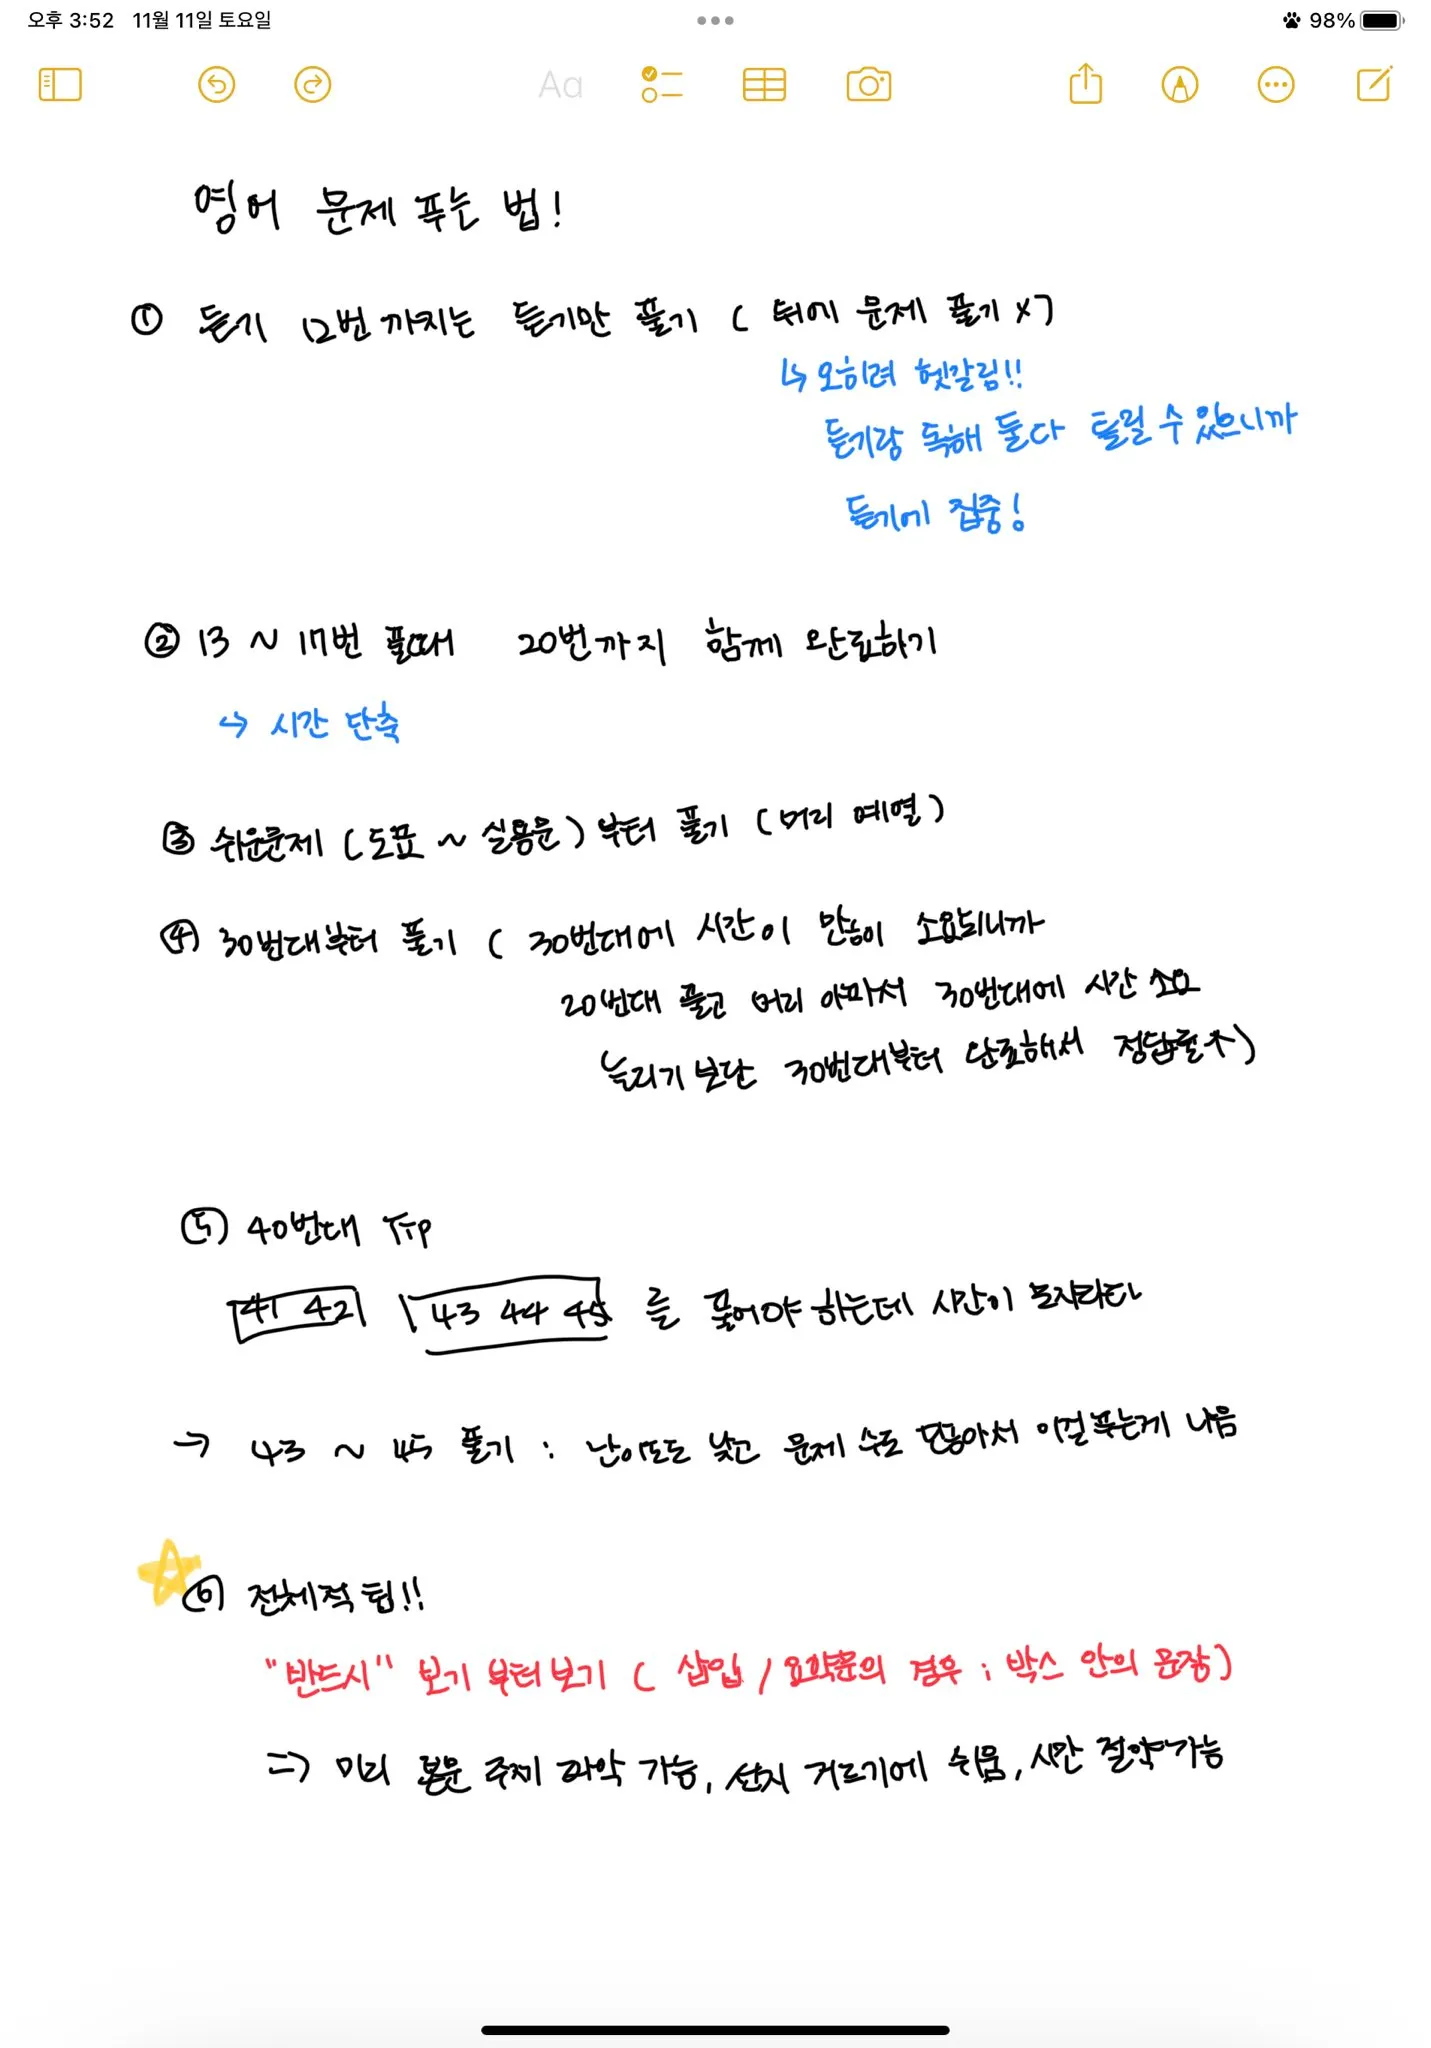 오후 3:52 11월 11일 토요일
98%
Aa
영어 문제 푸는 법!
① 듣기 12번까지는 듣기만 풀기 ( 뒤에 문제 풀기 X)
↳ 오히려 헷갈림!!
듣기랑 독해 둘다 틀릴 수 있으니까
듣기에 집중!
② 13 ~ 17번 풀때 20번까지 함께 완료하기
→ 시간 단축
③ 쉬운문제 (도표 ~ 실용문) 부터 풀기 (머리 예열)
④ 30번대부터 풀기 ( 30번대에 시간이 많이 소요되니까
20번대 풀고 머리 아파서 30번대에 시간 소요
늘리기 보단 30번대부터 완료해서 정답률↑)
⑤ 40번대 Tip
41 42 43 44 45 를 풀어야 하는데 시간이 모자라다
→ 43 ~ 45 풀기 : 난이도도 낮고 문제 수도 많아서 이걸 푸는게 나음
⑥ 전체적 팁!!
"반드시" 보기 부터 보기 ( 삽입 / 요약문의 경우 ; 박스 안의 문장)
=> 미리 본문 주제 파악 가능, 선지 거르기에 쉬움, 시간 절약가능